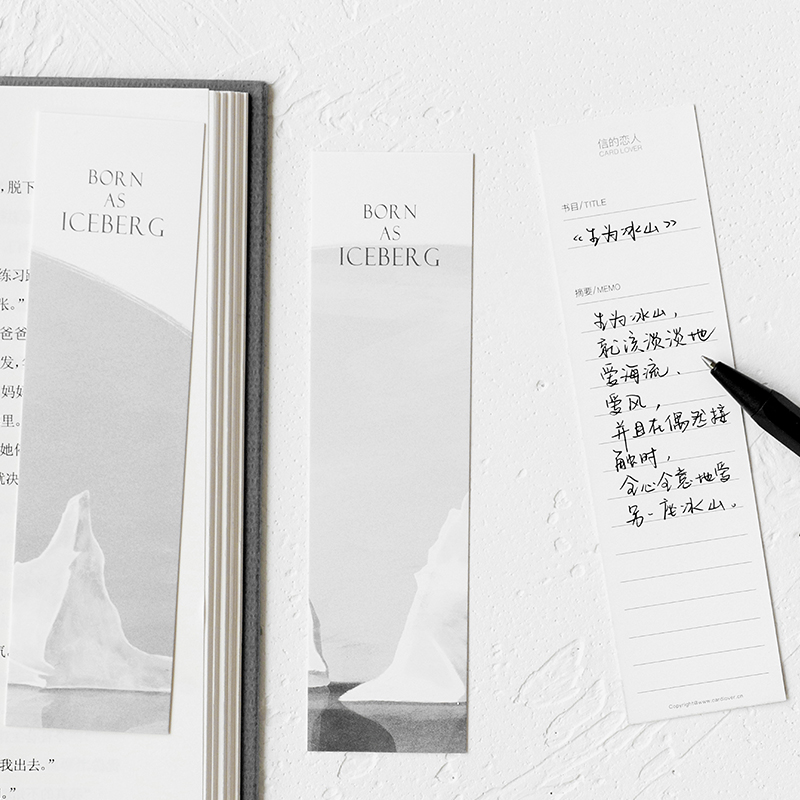 BORN
AS
ICEBERG
脱下
练习
张。”
爸爸
发,
妈妈
里。
她
决
气。
我出去。”
。”
BORN
AS
ICEBERG
信的恋人
CARD LOVER
书目/TITLE
《生为冰山》
摘要/MEMO
生为冰山,
就该淡淡地
爱海流、
爱风,
并且在偶然接
触时,
全心全意地爱
另一座冰山。
Copyright@www.cardlover.cn